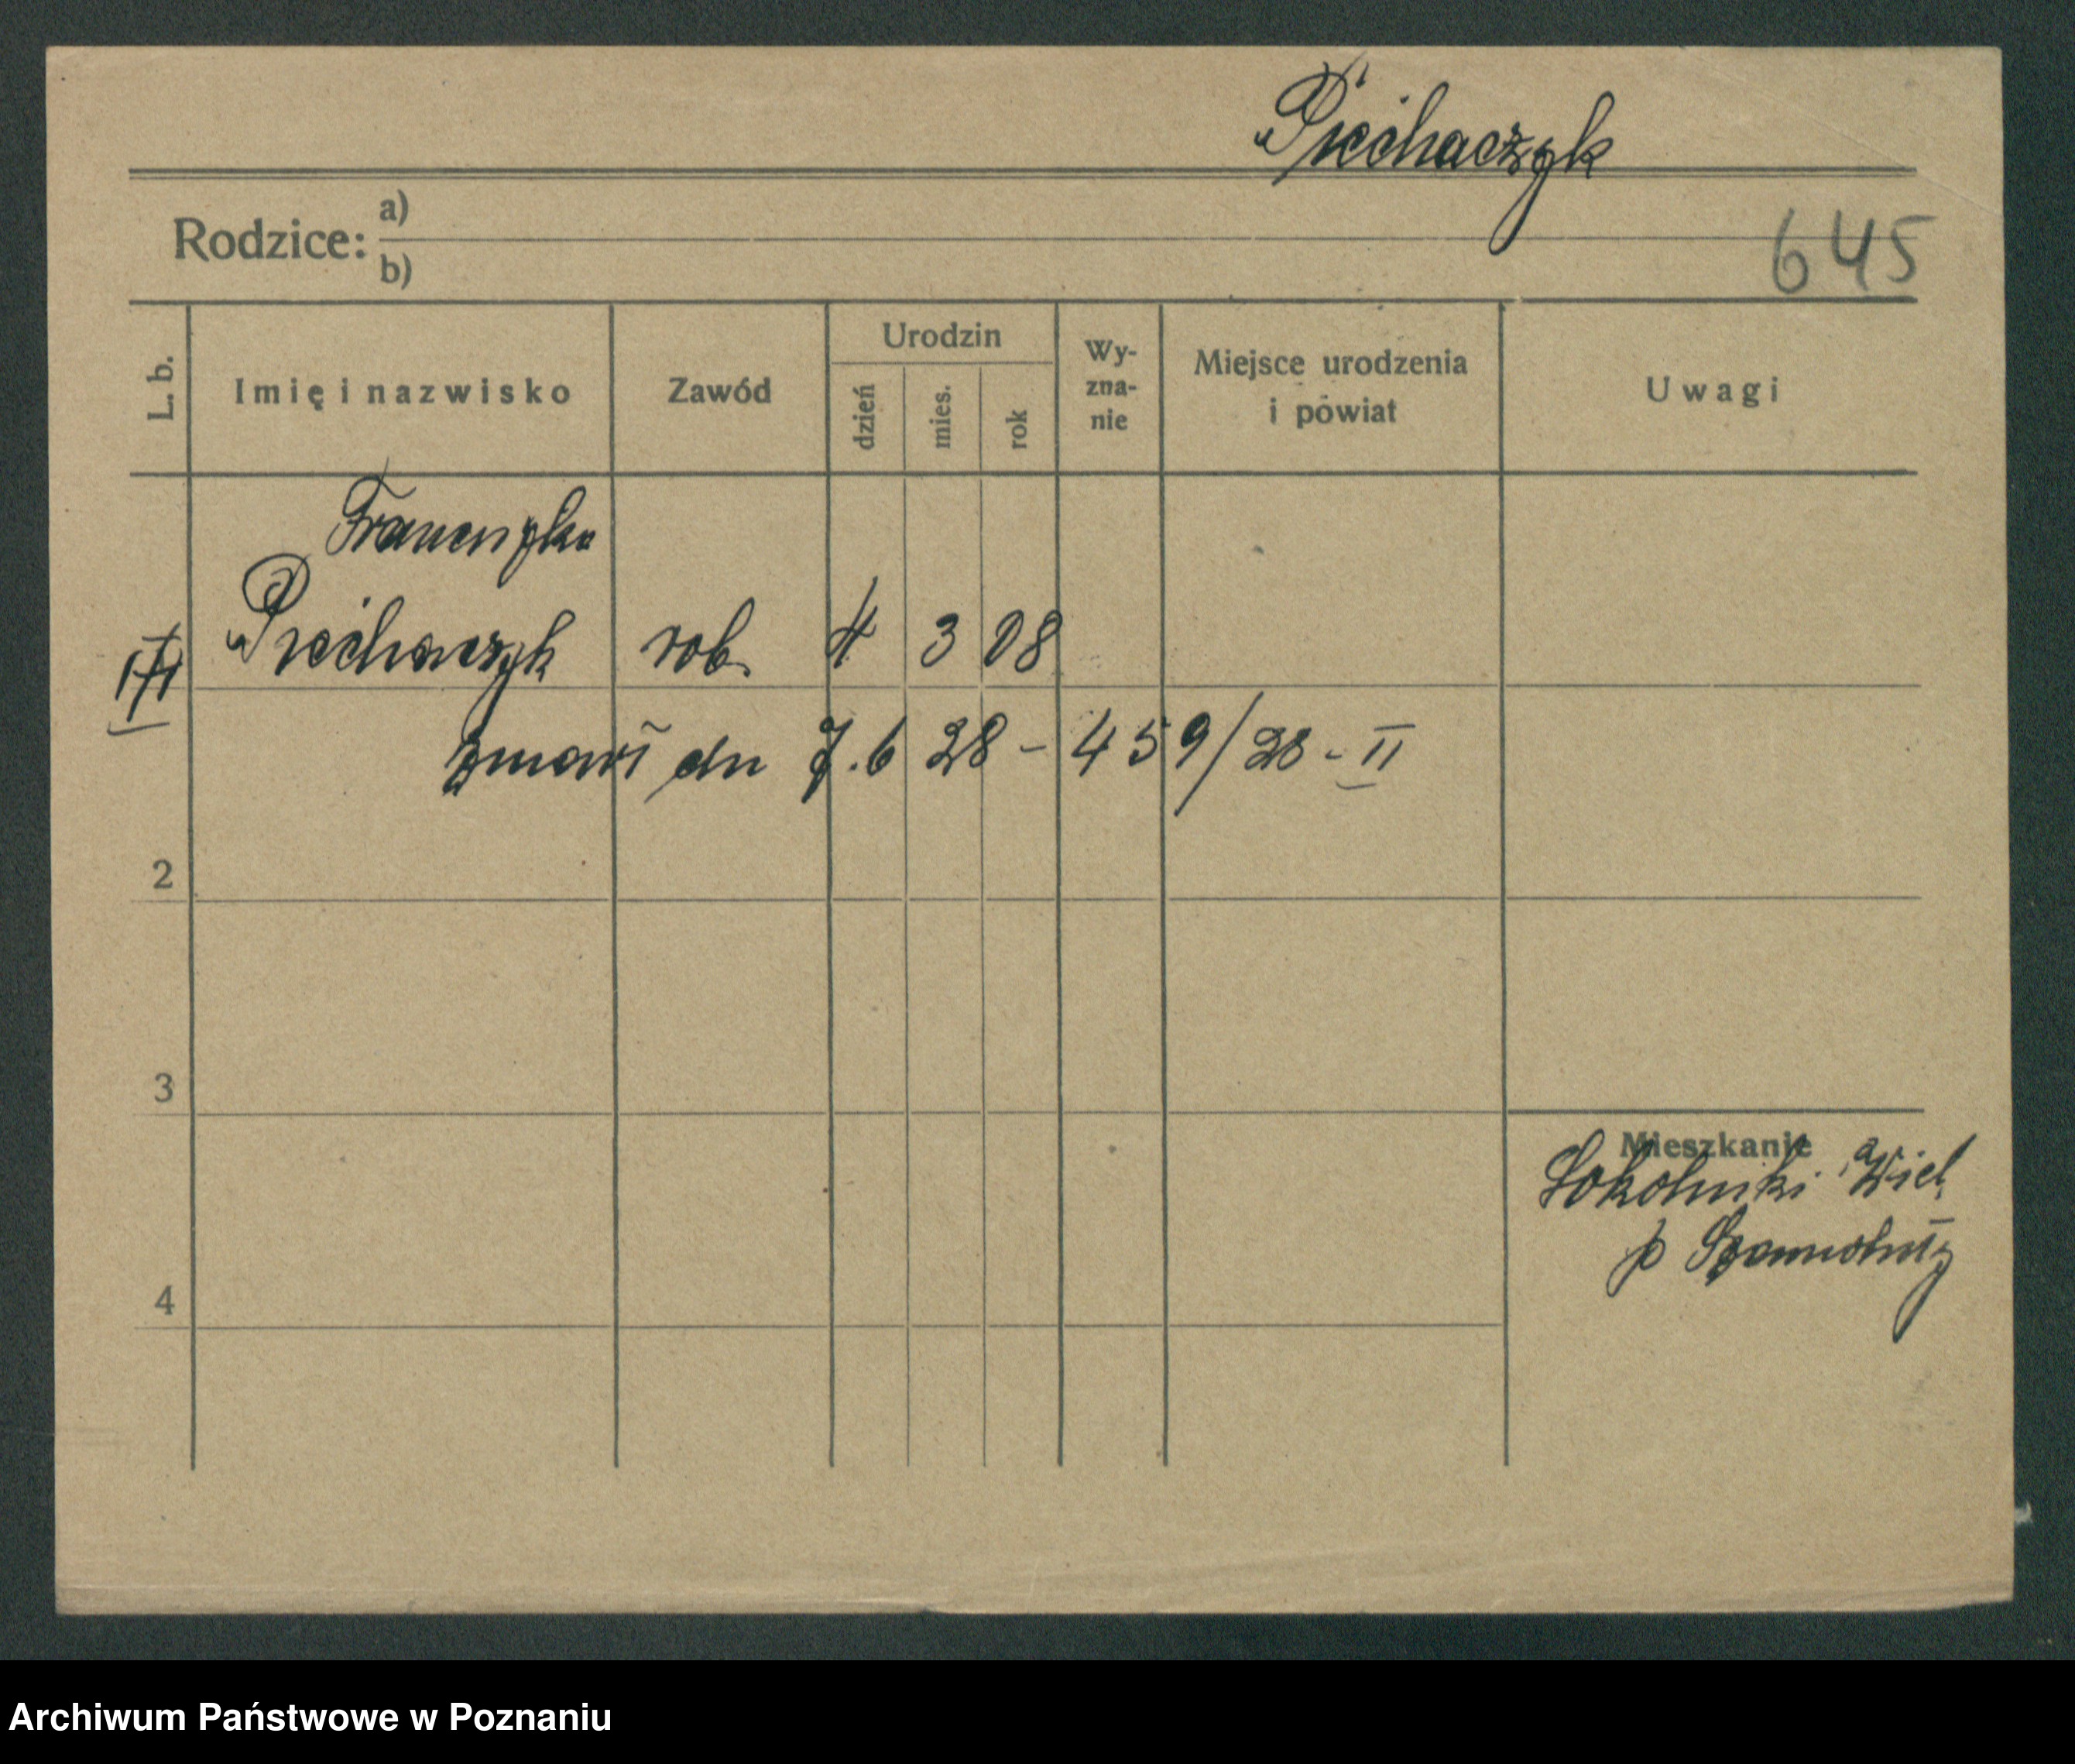 Piechaczyk
Rodzice: a)
b)
645
L. b.
Imię i nazwisko
Zawód
Urodzin
dzień
mies.
rok
Wy-
zna-
nie
Miejsce urodzenia
i powiat
Uwagi
Franciszka
Piechaczyk rob. 4 3 08
zmarł dn 7.6 28 - 459/28 - II
2
3
4
Mieszkanie
Sokolniki Wiel.
p Szamotuły
Archiwum Państwowe w Poznaniu